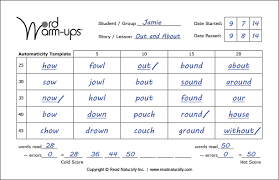 Word Warm-ups®
Student / Group Jamie Date Started: 9 7 14
Story / Lesson Out and About Date Passed: 9 8 14
Automaticity Template 5 10 15 20
25 how fowl out/ bound about
35 sow/ found bow/ house around
45 now/ power pout bounce allow
55 chow down couch ground without/
words read 28 words read 50
– errors 0 = 28 36 44 50 – errors 0 = 50
Cold Score Hot Score
Copyright © Read Naturally Inc. | www.readnaturally.com